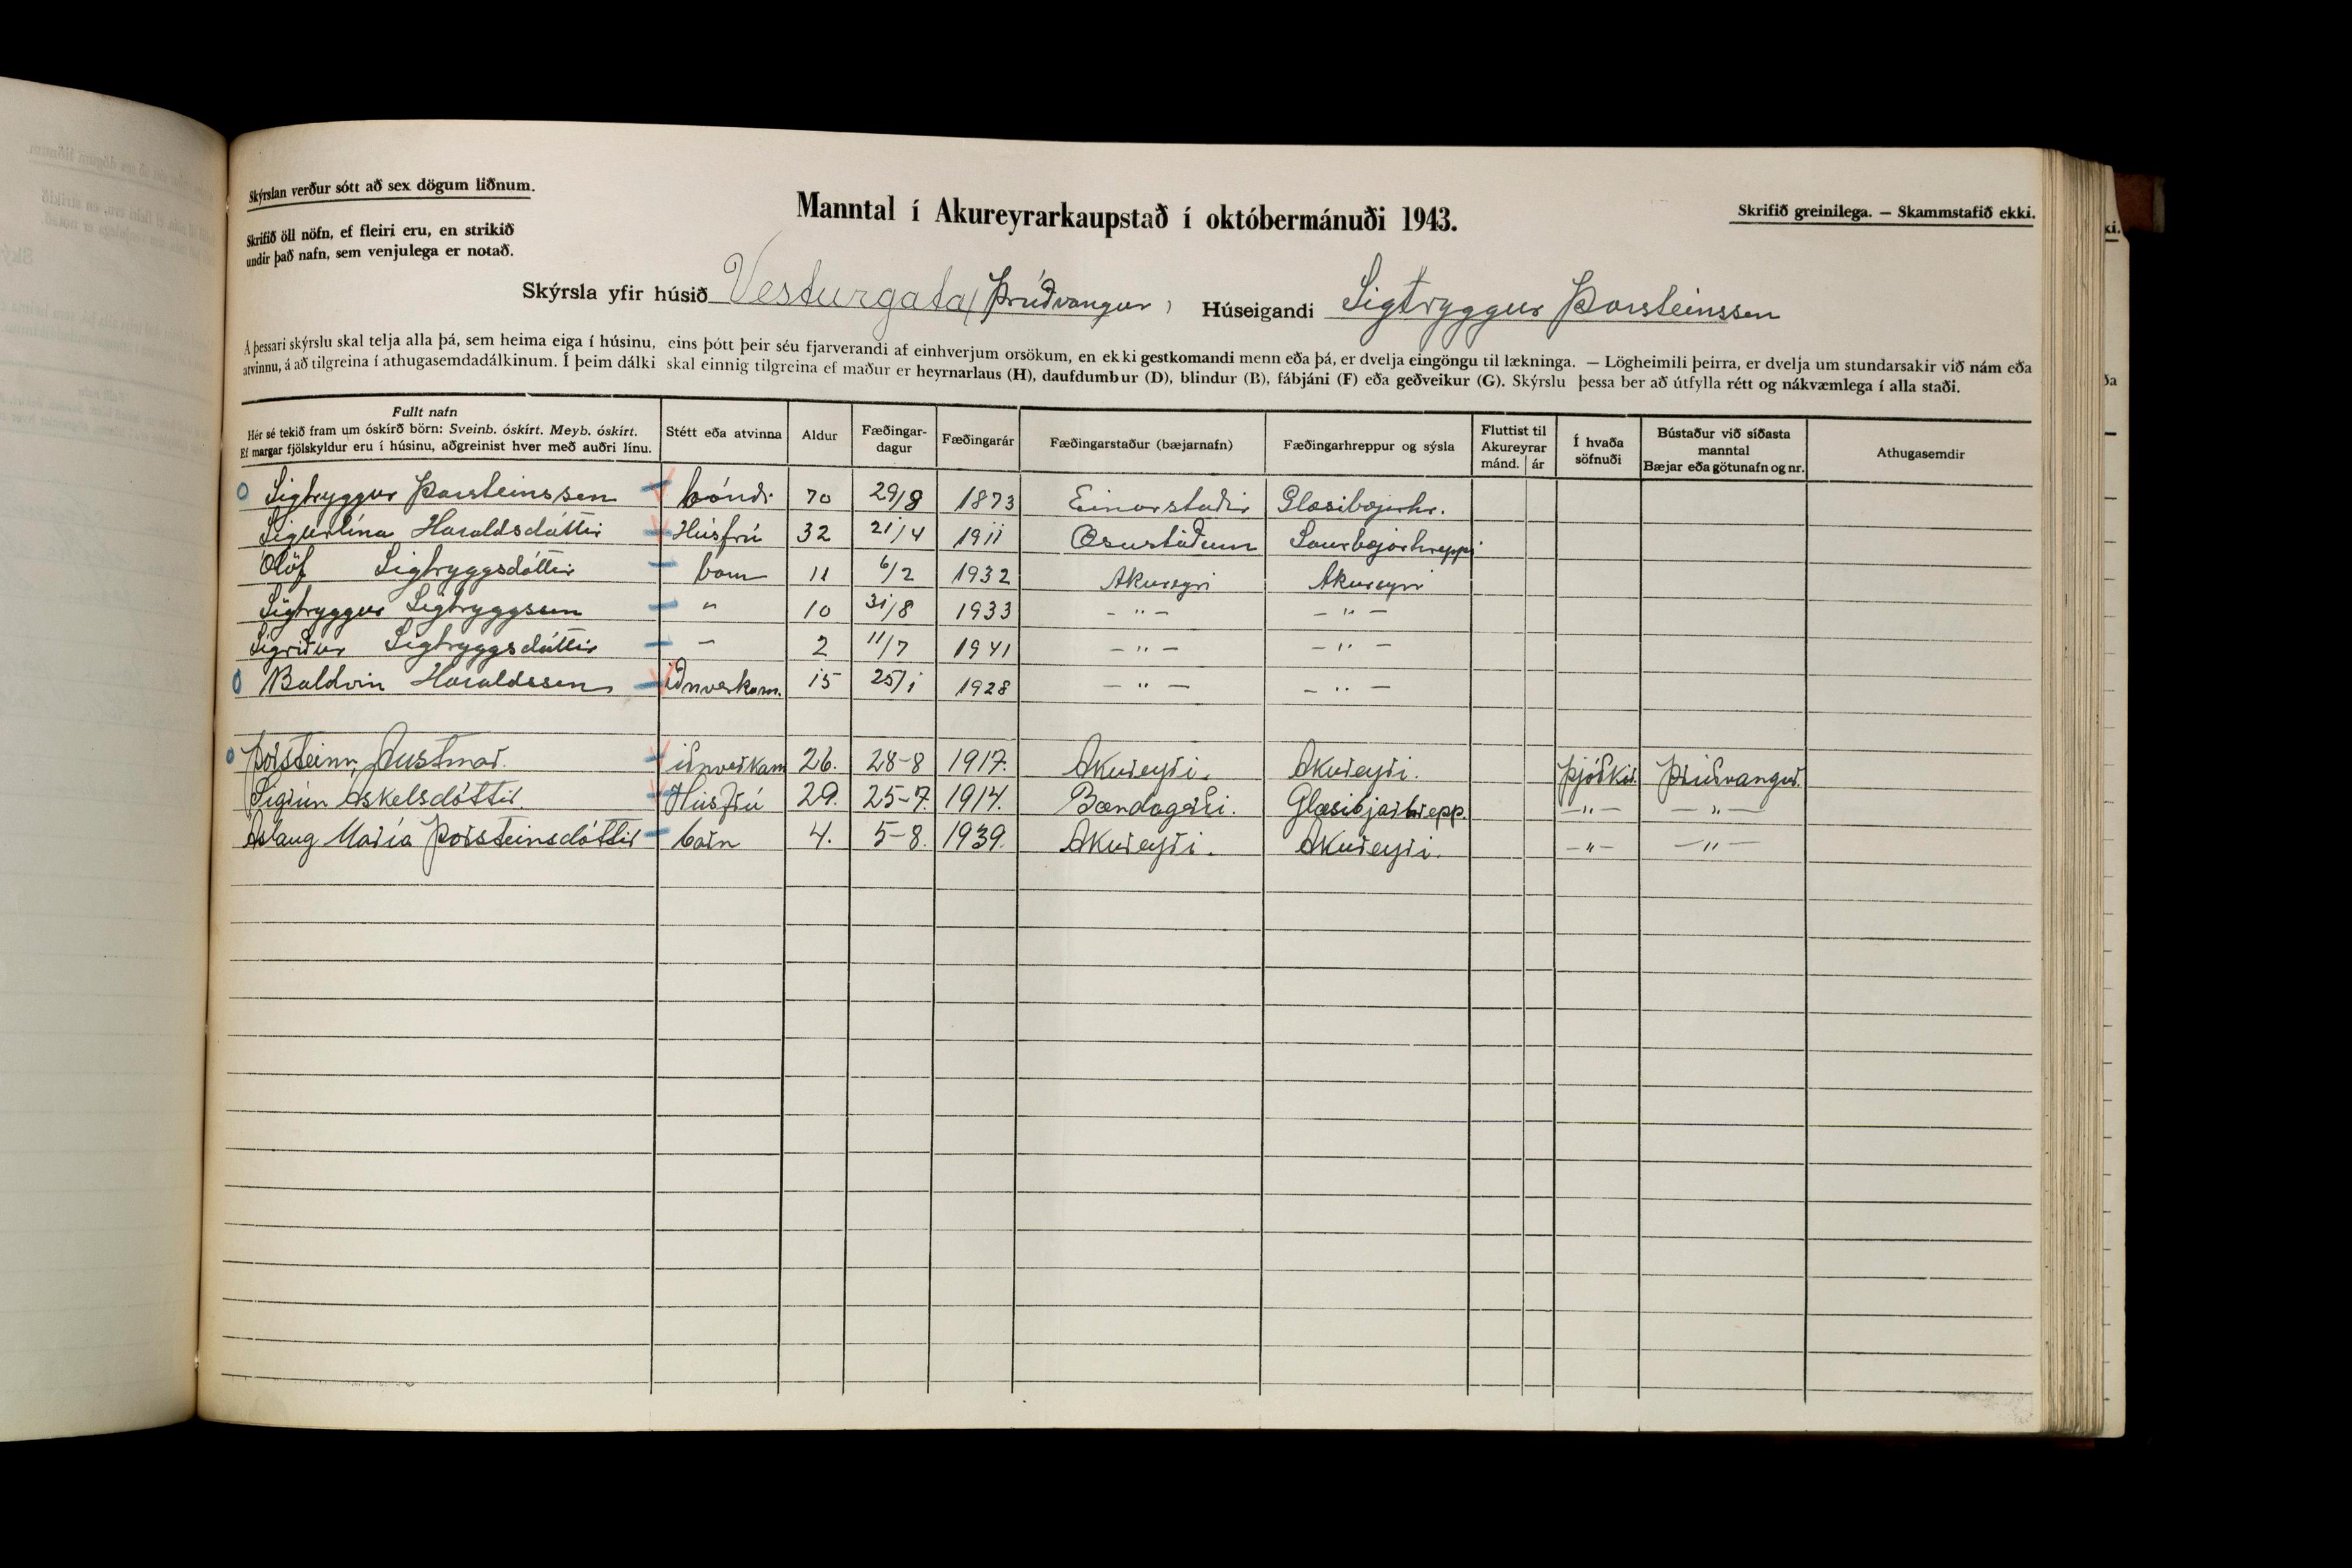 Skýrslan verður sótt að sex dögum liðnum.
Manntal í Akureyrarkaupstað í októbermánuði 1943.
Skrifið greinilega. — Skammstafið ekki.
Skrifið öll nöfn, ef fleiri eru, en strikið
undir það nafn, sem venjulega er notað.
Skýrsla yfir húsið Vesturgata, Þrúðvangur, Húseigandi Sigtryggur Þorsteinssen
Á þessari skýrslu skal telja alla þá, sem heima eiga í húsinu, eins þótt þeir séu fjarverandi af einhverjum orsökum, en ekki gestkomandi menn eða þá, er dvelja eingöngu til lækninga. — Lögheimili þeirra, er dvelja um stundarsakir við nám eða
atvinnu, á að tilgreina í athugasemdadálkinum. Í þeim dálki skal einnig tilgreina ef maður er heyrnarlaus (H), daufdumbur (D), blindur (B), fábjáni (F) eða geðveikur (G). Skýrslu þessa ber að útfylla rétt og nákvæmlega í alla staði.
Fullt nafn
Hér sé tekið fram um óskírð börn: Sveinb. óskírt. Meyb. óskírt.
Ef margar fjölskyldur eru í húsinu, aðgreinist hver með auðri línu.
Stétt eða atvinna
Aldur
Fæðingar-
dagur
Fæðingarár
Fæðingarstaður (bæjarnafn)
Fæðingarhreppur og sýsla
Fluttist til
Akureyrar
mánd. ár
Í hvaða
söfnuði
Bústaður við síðasta
manntal
Bæjar eða götunafn og nr.
Athugasemdir
Sigtryggur Þorsteinssen bóndi 70 29/8 1873 Einarstaðir Glæsibæjarhr.
Sigurlína Haraldsdóttir Húsfrú 32 21/4 1911 Æsustöðum Saurbæjarhreppi
Ólöf Sigtryggsdóttir barn 11 6/2 1932 Akureyri Akureyri
Sigtryggur Sigtryggsen " 10 31/8 1933 - " - - " -
Sigríður Sigtryggsdóttir - 2 11/7 1941 - " - - " -
Baldvin Haraldssen iðnverkam. 15 25/1 1928 - " - - " -
Þorsteinn Austmar. iðnverkam 26. 28-8 1917. Akureyri. Akureyri. Þjóðkir. Þrúðvangur.
Sigrún Áskelsdóttir. Húsfrú 29. 25-7. 1914. Bandagerði. Glæsibjarhrepp. - " - - " -
Áslaug María Þorsteinsdóttir barn 4. 5-8. 1939. Akureyri. Akureyri. - " - - " -